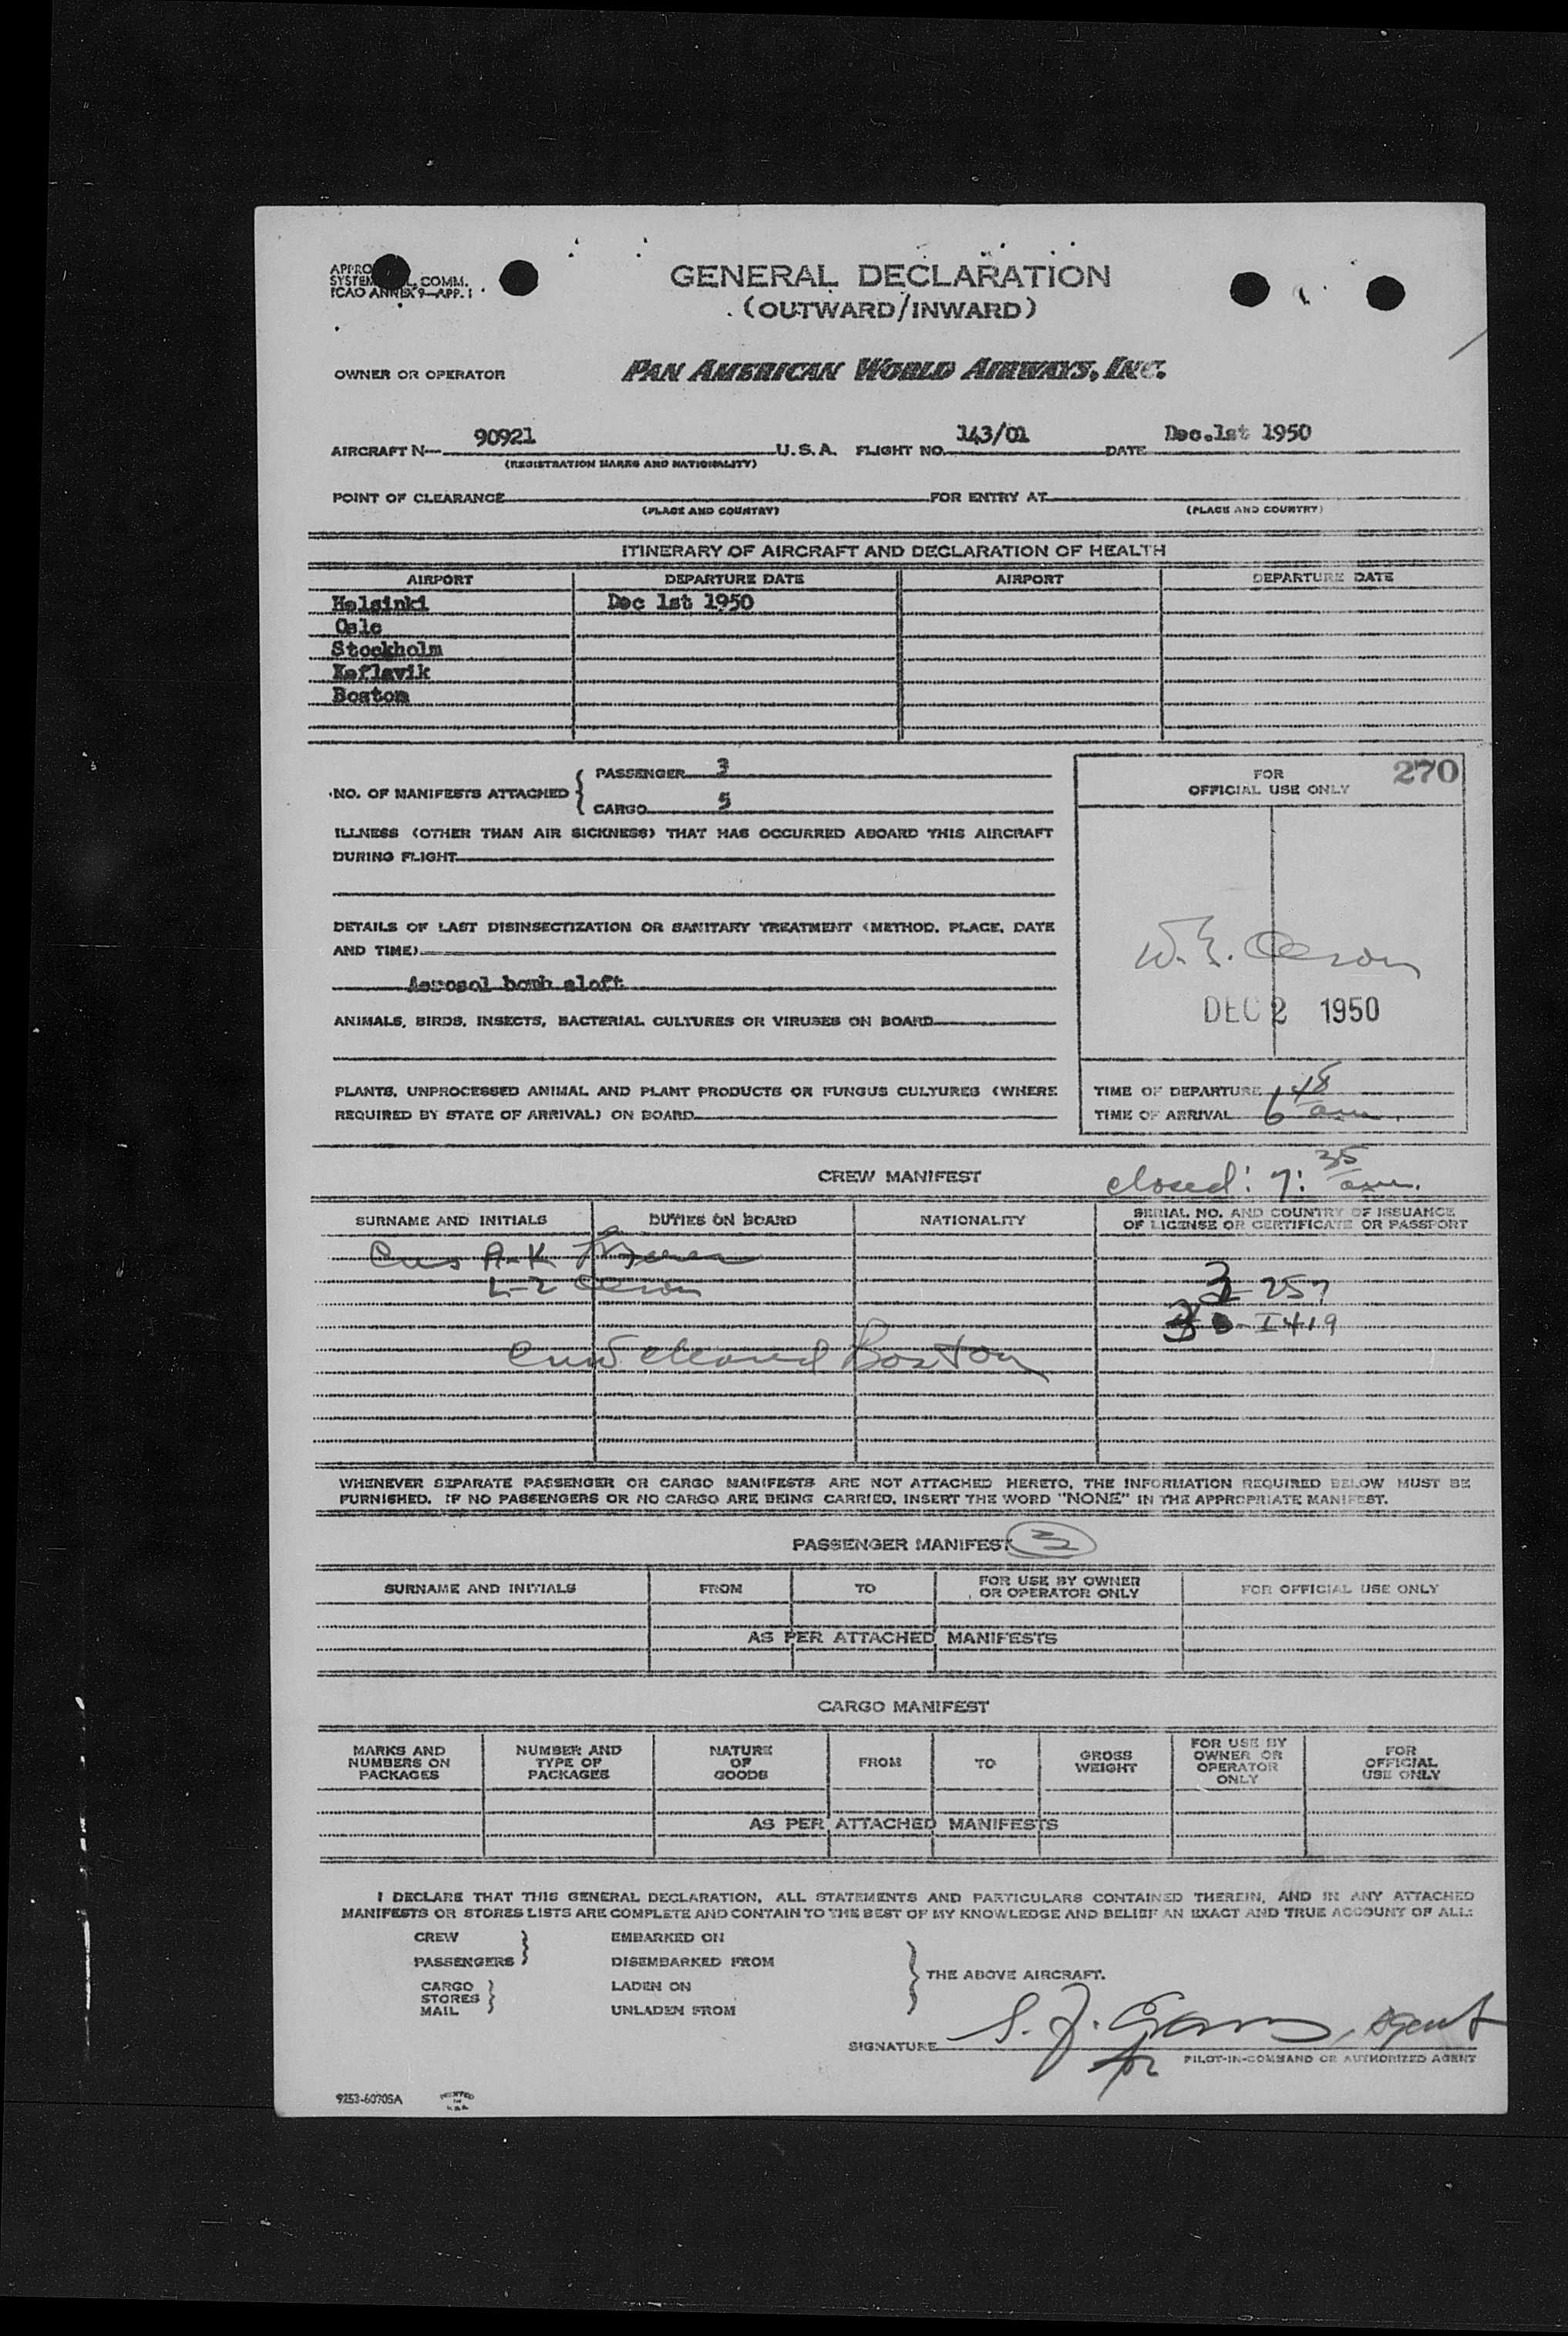 GENERAL DECLARATION
(OUTWARD/INWARD)
SYSTEM COMM.
ICAO ANNEX 9—APP. 1
OWNER OR OPERATOR PAN AMERICAN WORLD AIRWAYS, INC.
AIRCRAFT N— 90921 U. S. A. FLIGHT NO. 143/01 DATE Dec.1st 1950
(REGISTRATION MARKS AND NATIONALITY)
POINT OF CLEARANCE FOR ENTRY AT
(PLACE AND COUNTRY) (PLACE AND COUNTRY)
ITINERARY OF AIRCRAFT AND DECLARATION OF HEALTH
AIRPORT DEPARTURE DATE AIRPORT DEPARTURE DATE
Helsinki Dec 1st 1950
Oslo
Stockholm
Keflavik
Boston
NO. OF MANIFESTS ATTACHED { PASSENGER 3
CARGO 5
ILLNESS (OTHER THAN AIR SICKNESS) THAT HAS OCCURRED ABOARD THIS AIRCRAFT
DURING FLIGHT
DETAILS OF LAST DISINSECTIZATION OR SANITARY TREATMENT (METHOD, PLACE, DATE
AND TIME)
Aerosol bomb aloft
ANIMALS, BIRDS, INSECTS, BACTERIAL CULTURES OR VIRUSES ON BOARD
PLANTS, UNPROCESSED ANIMAL AND PLANT PRODUCTS OR FUNGUS CULTURES (WHERE
REQUIRED BY STATE OF ARRIVAL) ON BOARD
FOR 270
OFFICIAL USE ONLY
W. E.
DEC 2 1950
TIME OF DEPARTURE
TIME OF ARRIVAL 6 48 am.
CREW MANIFEST closed: 7: 35 am.
SURNAME AND INITIALS DUTIES ON BOARD NATIONALITY SERIAL NO. AND COUNTRY OF ISSUANCE
OF LICENSE OR CERTIFICATE OR PASSPORT
Cus A-K
L-Z
257
I 419
Boston
WHENEVER SEPARATE PASSENGER OR CARGO MANIFESTS ARE NOT ATTACHED HERETO, THE INFORMATION REQUIRED BELOW MUST BE
FURNISHED. IF NO PASSENGERS OR NO CARGO ARE BEING CARRIED, INSERT THE WORD "NONE" IN THE APPROPRIATE MANIFEST.
PASSENGER MANIFEST 3
SURNAME AND INITIALS FROM TO FOR USE BY OWNER
OR OPERATOR ONLY FOR OFFICIAL USE ONLY
AS PER ATTACHED MANIFESTS
CARGO MANIFEST
MARKS AND
NUMBERS ON
PACKAGES NUMBER AND
TYPE OF
PACKAGES NATURE
OF
GOODS FROM TO GROSS
WEIGHT FOR USE BY
OWNER OR
OPERATOR
ONLY FOR
OFFICIAL
USE ONLY
AS PER ATTACHED MANIFESTS
I DECLARE THAT THIS GENERAL DECLARATION, ALL STATEMENTS AND PARTICULARS CONTAINED THEREIN, AND IN ANY ATTACHED
MANIFESTS OR STORES LISTS ARE COMPLETE AND CONTAIN TO THE BEST OF MY KNOWLEDGE AND BELIEF AN EXACT AND TRUE ACCOUNT OF ALL:
CREW EMBARKED ON
PASSENGERS } DISEMBARKED FROM
CARGO LADEN ON
STORES }
MAIL UNLADEN FROM
} THE ABOVE AIRCRAFT.
SIGNATURE S. J. , agent
for PILOT-IN-COMMAND OR AUTHORIZED AGENT
9253-60705A PRINTED
IN
U.S.A.